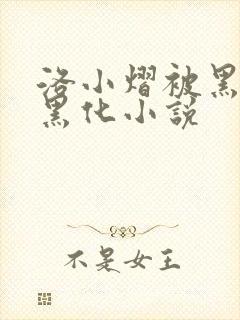 洛小熠被黑
黑化小说
不是女王